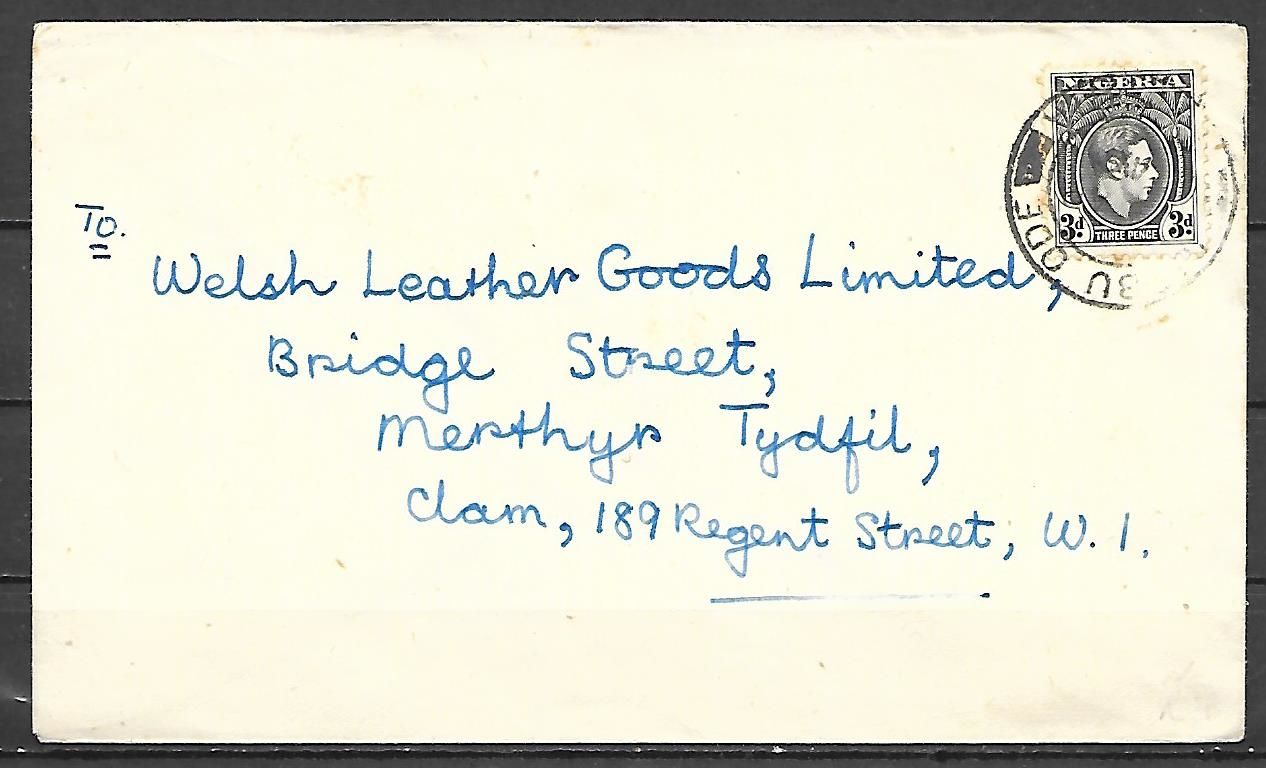 NIGERIA
3d THREE PENCE 3d
BU ODE
To.
Welsh Leather Goods Limited,
Bridge Street,
Merthyr Tydfil,
Clam, 189 Regent Street, W. 1.